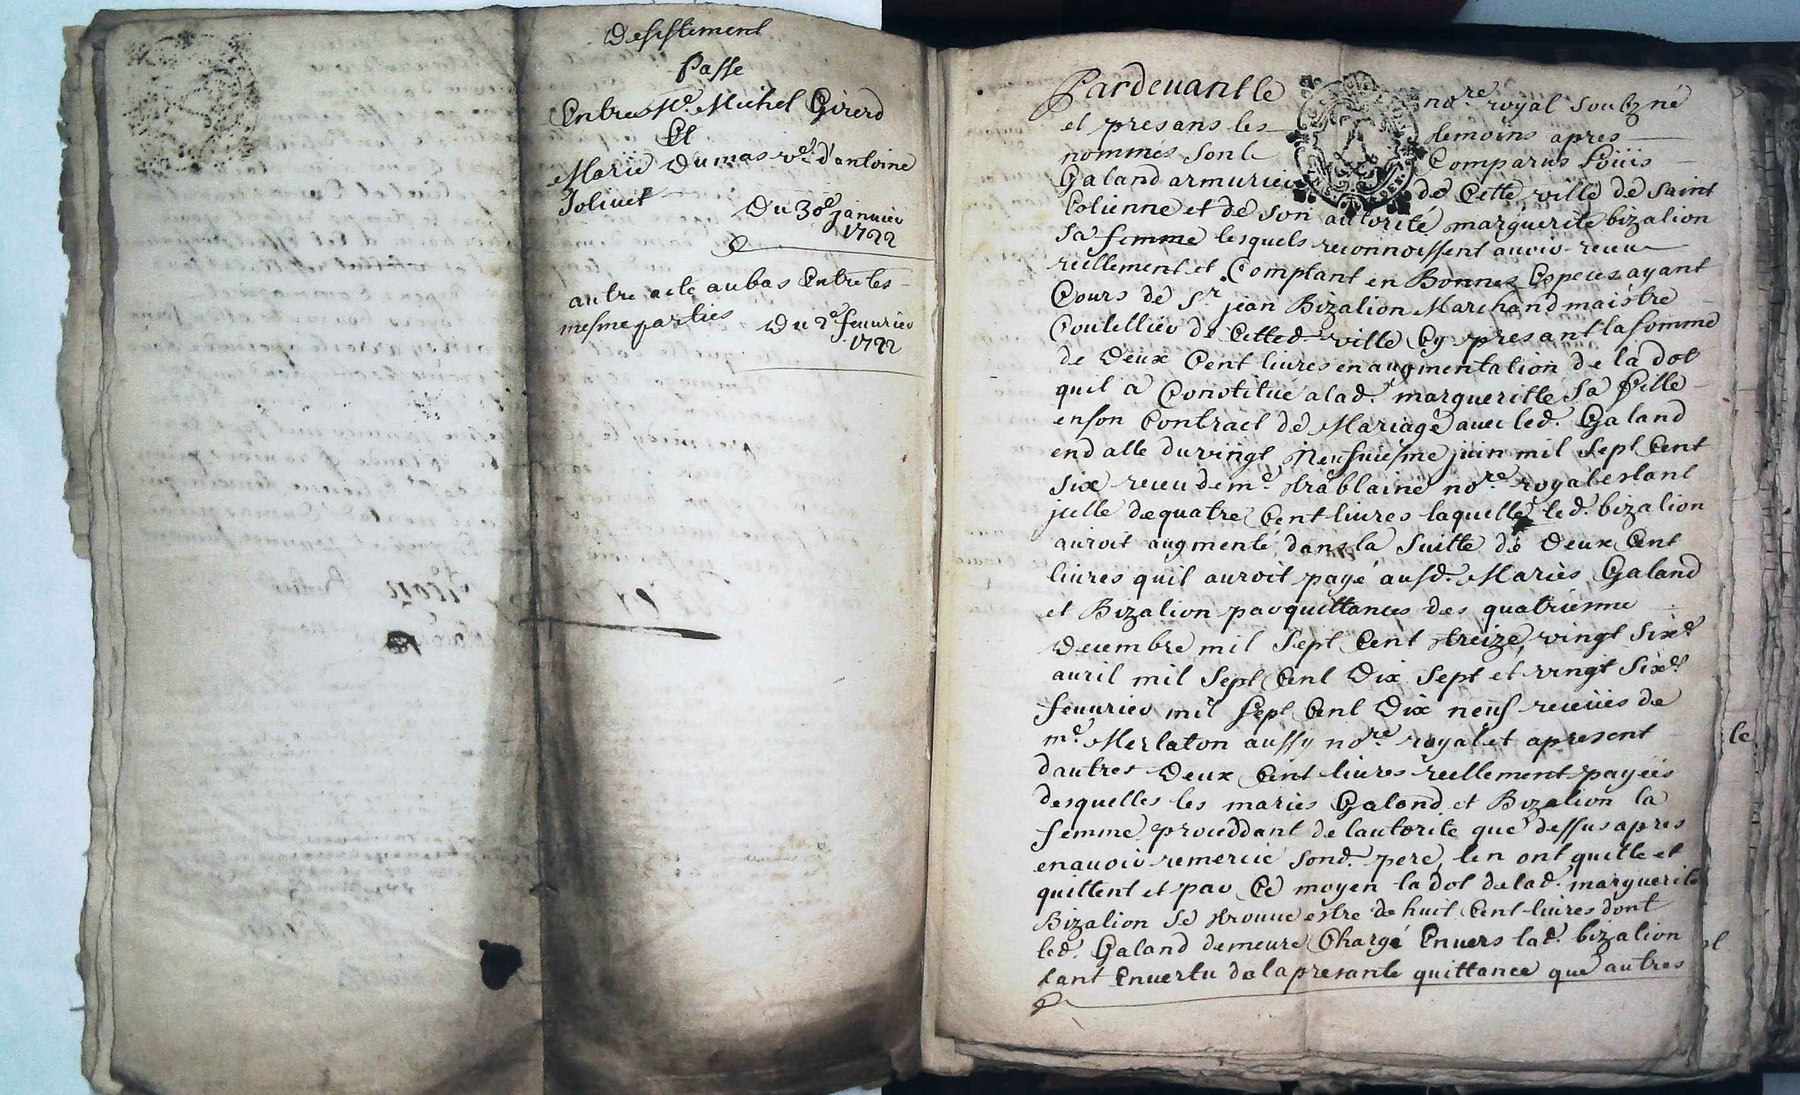 Desistement
Passé
Entres Me. Michel Girerd
Et
Marie Dumas ve. d'antoine
Jolivet
Du 30e janvier
1722
autre acte au bas Entre les
mesme parties Du 2e fevurier
1722
Pardevant le no.re royal soubzné
et presans les temoins apres
nommés sont Comparus Loüis
Galand armurier de Cette ville de saint
Estienne et de son autorité marguerite bizalion
sa femme lesquels reconnoissent avoir receu
reellement et Comptant en Bonnes Especes ayant
Cours de Sr. jean Bizalion Marchand maistre
Coutellier de Cetted. ville Cy presant la somme
de Deux Cent livres en augmentation de la dot
quil a Constitué a lad. margueritte sa fille
en son Contract de Mariage avec led. Galand
en datte du vingt neufuiesme juin mil sept Cent
six receu de me. trablaine no.re royal estant
jcelle de quatre Cent livres laquelle led. bizalion
auroit augmenté dans la suitte de Deux Cent
livres quil auroit payé ausd. Mariés Galand
et Bizalion par quittances des quatriesme
Decembre mil sept Cent treize, vingt sixe.
auril mil sept Cent Dix sept et vingt sixe.
feuurier mil sept Cent Dix neuf receües de
me. Merlaton aussy no.re royal et apresent
dautres Deux Cent livres reellement payées
desquelles les mariés Galand et Bizalion la
femme proceddant de lautorité que dessus apres
en avoir remercié sond. pere, len ont quitté et
quittent et par Ce moyen la dot de lad. marguerite
Bizalion se trouue estre de huit Cent livres dont
led. Galand demeure Chargé Enuers lad. bizalion
tant En vertu de la presante quittance que autres
le